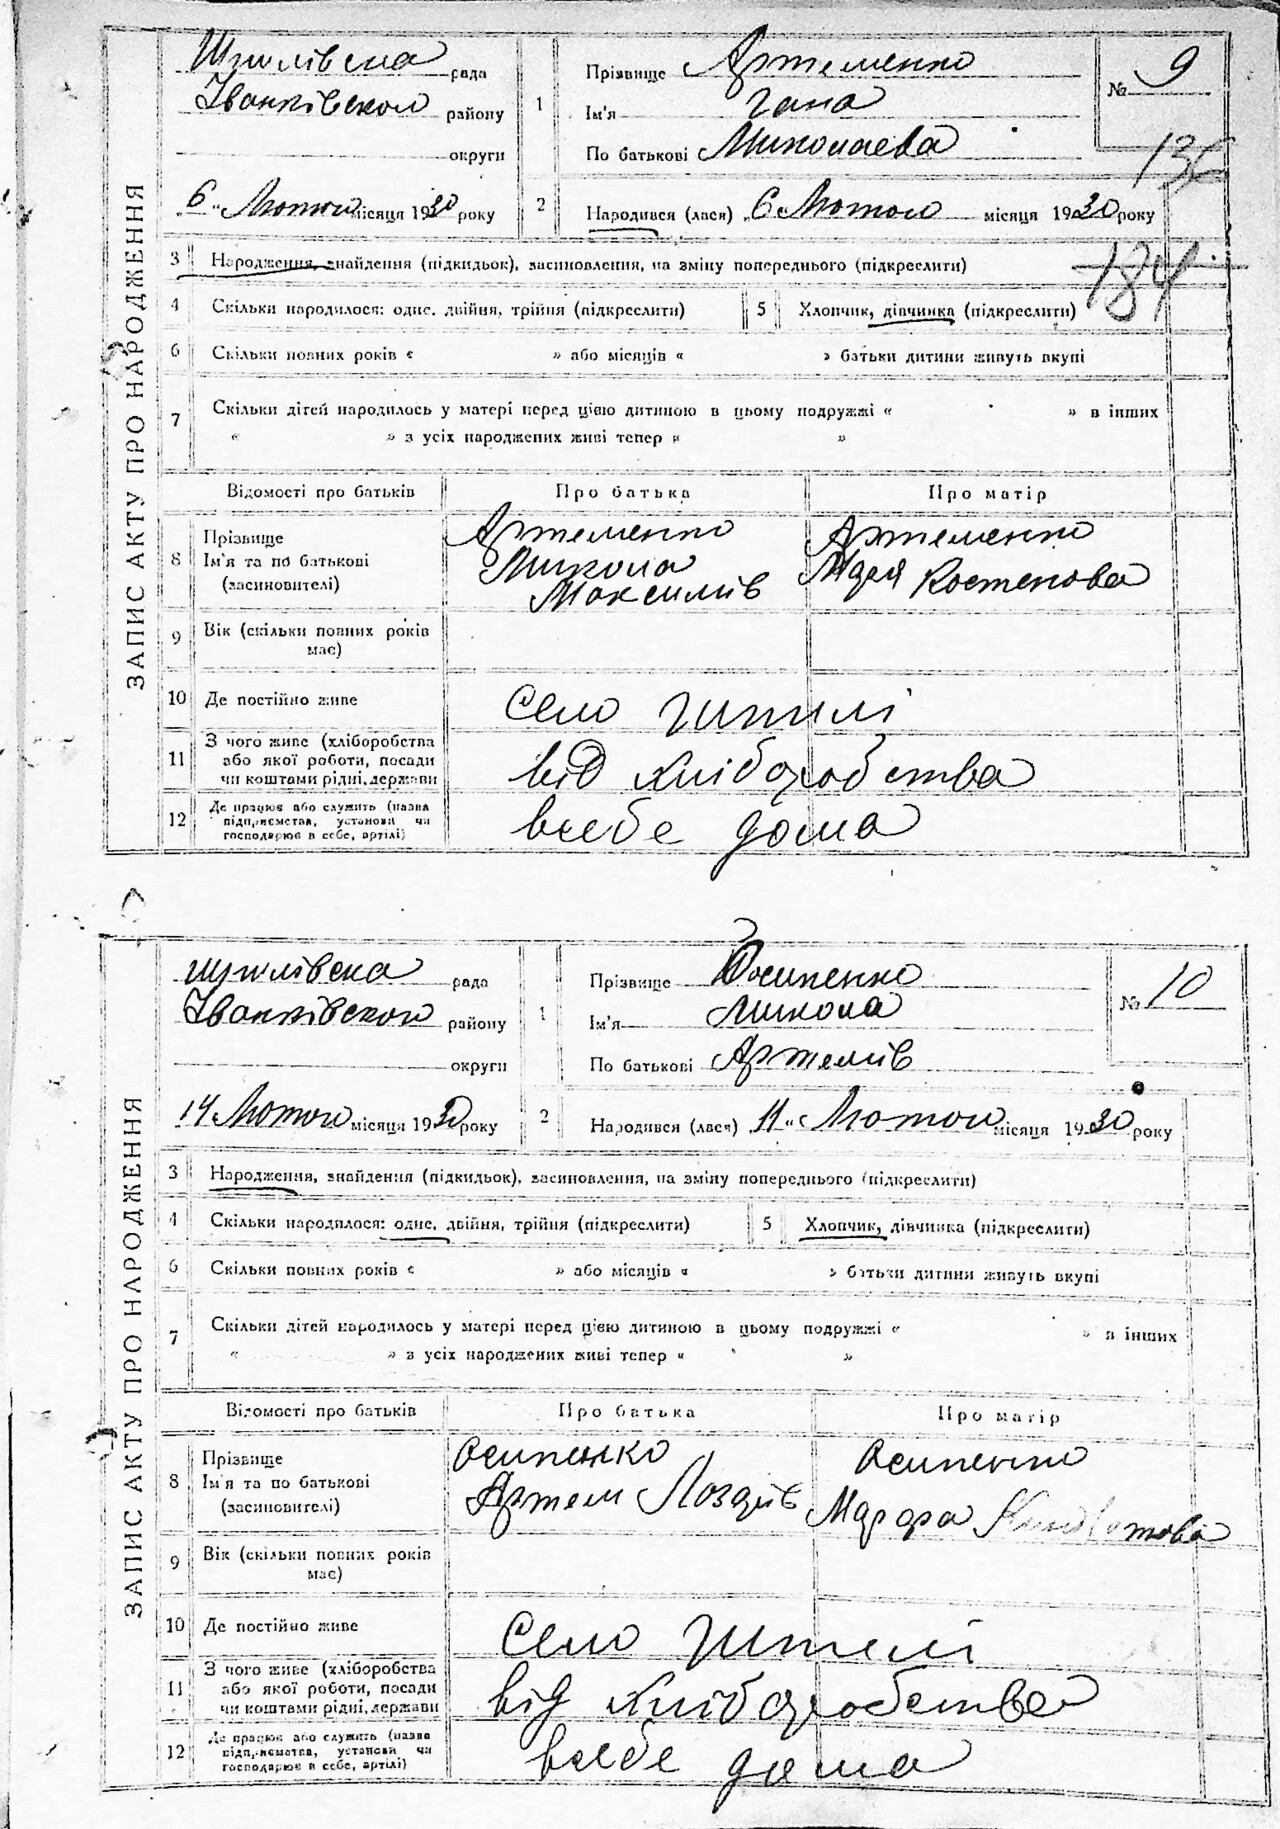 ЗАПИС АКТУ ПРО НАРОДЖЕННЯ
рада
Іванківської району
округи
„6“ Лютого місяця 1930 року
1 Прізвище Артеменко
Ім'я Гана
По батькові Миколаєва
№ 9
136
2 Народився (лася) „6“ Лютого місяця 1930 року
3 Народження, знайдення (підкидьок), засиновлення, на зміну попереднього (підкреслити)
184
4 Скільки народилося: одне, двійня, трійня (підкреслити) 5 Хлопчик, дівчинка (підкреслити)
6 Скільки повних років « » або місяців « » батьки дитини живуть вкупі
7 Скільки дітей народилось у матері перед цією дитиною в цьому подружжі « » в інших
« » з усіх народжених живі тепер « »
Відомості про батьків Про батька Про матір
8 Прізвище Ім'я та по батькові (засиновителі)
Артеменко Микола Максимів
Артеменко
9 Вік (скільки повних років має)
10 Де постійно живе село
11 З чого живе (хліборобства або якої роботи, посади чи коштами рідні, держави від хліборобства
12 Де працює або служить (назва підприємства, установи чи господарює в себе, артілі) всебе дома
ЗАПИС АКТУ ПРО НАРОДЖЕННЯ
рада
Іванківської району
округи
14 Лютого місяця 1930 року
1 Прізвище Осипенко
Ім'я Микола
По батькові Артемів
№ 10
2 Народився (лася) „11“ Лютого місяця 1930 року
3 Народження, знайдення (підкидьок), засиновлення, на зміну попереднього (підкреслити)
4 Скільки народилося: одне, двійня, трійня (підкреслити) 5 Хлопчик, дівчинка (підкреслити)
6 Скільки повних років « » або місяців « » батьки дитини живуть вкупі
7 Скільки дітей народилось у матері перед цією дитиною в цьому подружжі « » в інших
« » з усіх народжених живі тепер « »
Відомості про батьків Про батька Про матір
8 Прізвище Ім'я та по батькові (засиновителі)
Осипенко Артем
Осипенко
9 Вік (скільки повних років має)
10 Де постійно живе село
11 З чого живе (хліборобства або якої роботи, посади чи коштами рідні, держави від хліборобства
12 Де працює або служить (назва підприємства, установи чи господарює в себе, артілі) всебе дома